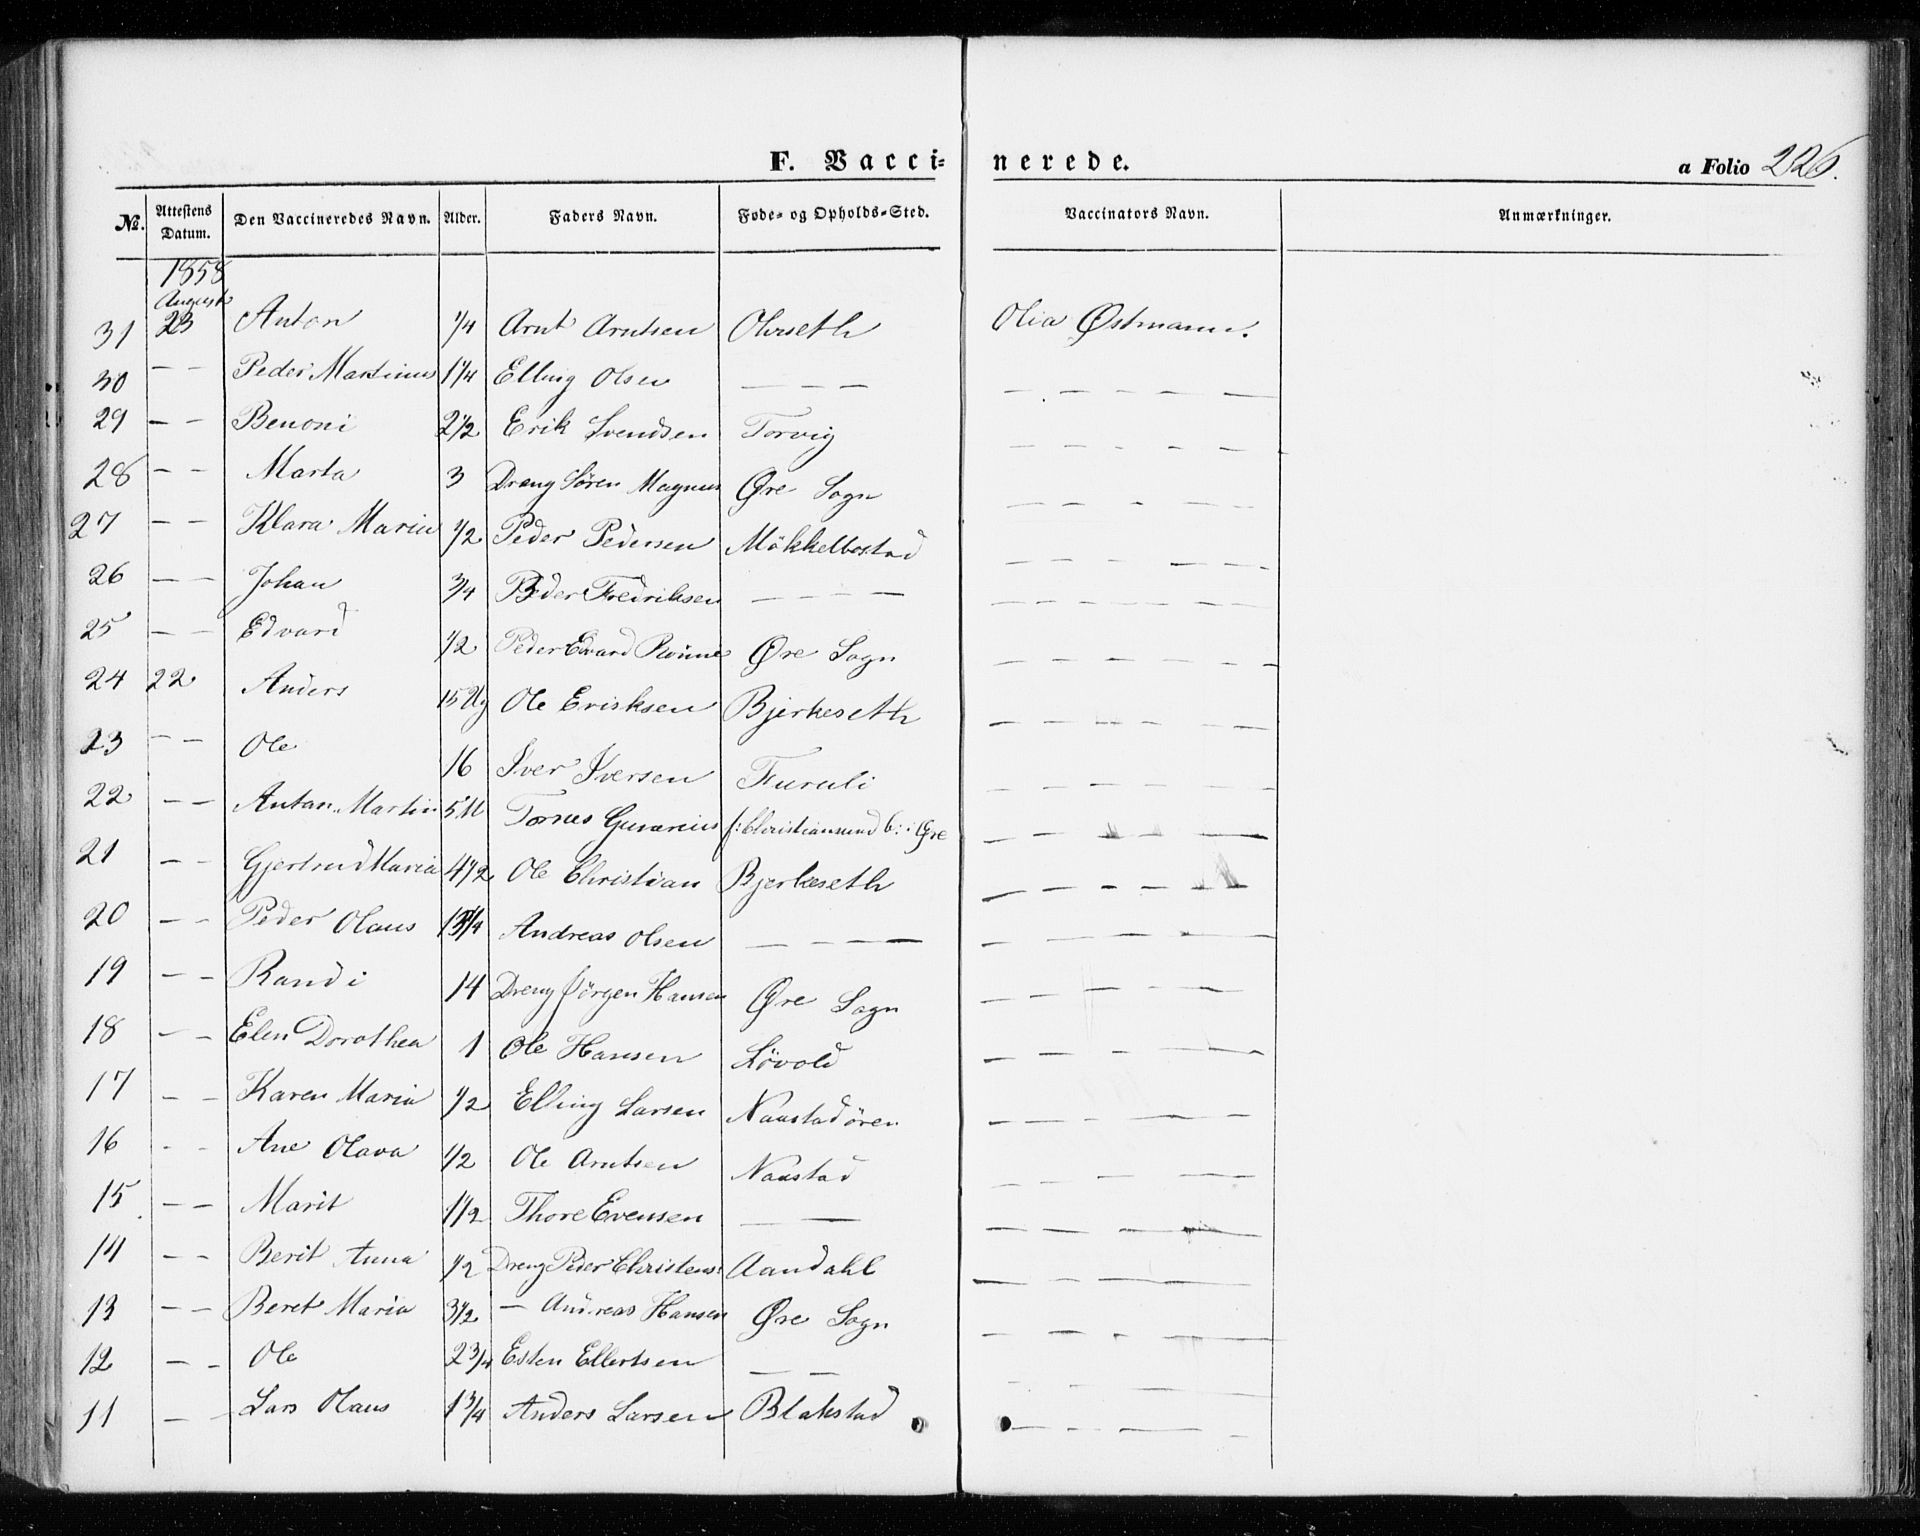 F. Vaccinerede.
a Folio 226.
No. Attestens Datum. Den Vaccineredes Navn. Alder. Faders Navn. Føde- og Opholds-Sted. Vaccinators Navn. Anmærkninger.
1858
August
31 23 Anton 1/4 Arnt Arntsen Olvseth Olia Østmann.
30 – – Peder Martinus 1 1/4 Elling Olsen — — — — — — — —
29 – – Benoni 2 1/2 Erik Svendsen Torvig — — — — —
28 – – Marta 3 Dreng Søren Magnus Øre Sogn — — — — —
27 – – Klara Maria 1/2 Peder Pedersen Mökkelbostad — — — — —
26 – – Johan 3/4 Peder Fredriksen — — — — — — — — —
25 – – Edvard 1/2 Peder Edvard Rönne Øre Sogn — — — — —
24 22 Anders 15 Ug Ole Eriksen Bjerkeseth — — — — —
23 – – Ole 16 Iver Iversen Furuli — — — — —
22 – – Anton Martin 5 M Tornes Gunerius f: Christiansund b: i Øre — — — — —
21 – – Gjertrud Maria 4 1/2 Ole Christian Bjerkeseth — — — — —
20 – – Peder Olaus 1 3/4 Andreas Olsen — — — — — — — — —
19 – – Randi 14 Dreng Jörgen Hansen Øre Sogn — — — — —
18 – – Elen Dorothea 1 Ole Hansen Lövold — — — — —
17 – – Karen Maria 1/2 Elling Larsen Naastadören — — — — —
16 – – Ane Olava 1/2 Ole Arntsen Naastad — — — — —
15 – – Marit 1 1/2 Thore Evensen — — — — — — —
14 – – Berit Anna 1/2 Dreng Peder Christens: Aandahl — — — — —
13 – – Beret Maria 3 1/2 — Andreas Hansen Øre Sogn — — — — —
12 – – Ole 2 3/4 Esten Ellertsen — — — — — — —
11 – – Lars Olaus 1 3/4 Anders Larsen Blakstad — — — — —